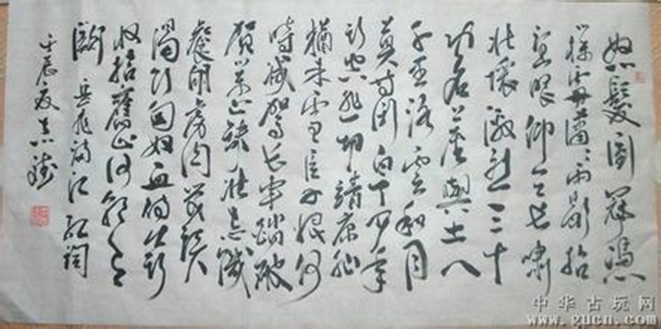 怒髮衝冠憑
欄處瀟瀟雨歇抬
望眼仰天長嘯
壯懷激烈三十
功名塵與土八
千里路雲和月
莫等閒白了少年
頭空悲切靖康恥
猶未雪臣子恨何
時滅駕長車踏破
賀蘭山缺壯志飢
餐胡虜肉笑談
渴飲匈奴血待從頭
收拾舊山河朝天
闕 岳飛滿江紅詞
壬辰夏志
中华古玩网
www.gucn.com